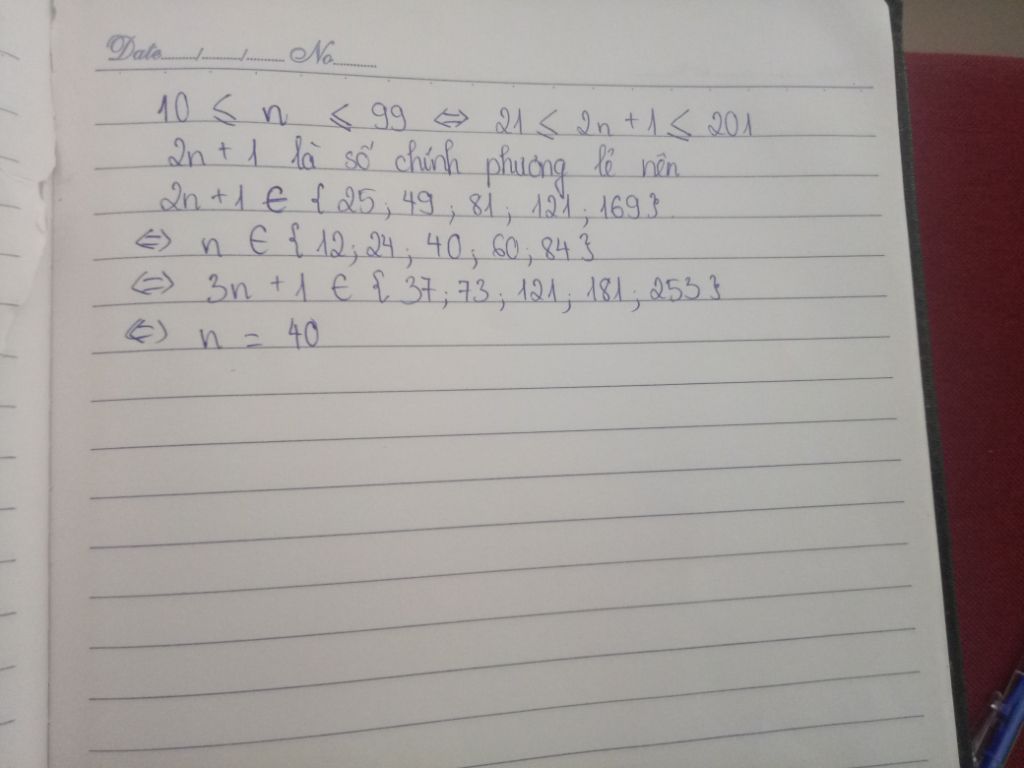 Date....../....../...... No......
10 ≤ n ≤ 99 ⇔ 21 ≤ 2n + 1 ≤ 201
2n + 1 là số chính phương lẻ nên
2n + 1 ∈ {25; 49; 81; 121; 169}
⇔ n ∈ {12; 24; 40; 60; 84}
⇔ 3n + 1 ∈ {37; 73; 121; 181; 253}
⇔ n = 40